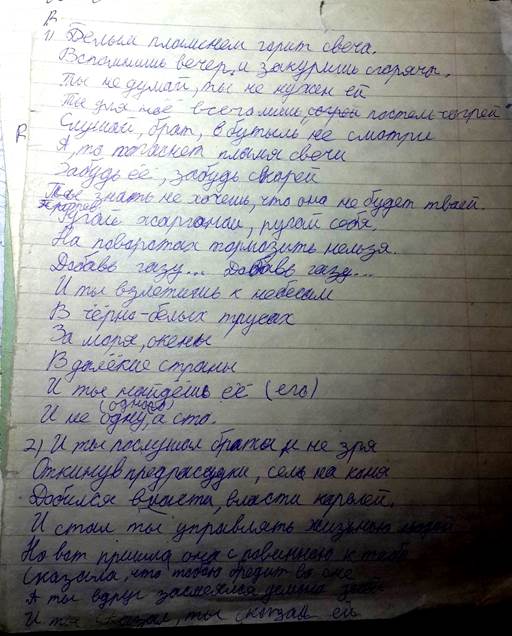 1) Белым пламенем горит свеча.
Вспомнишь вечер и закуришь сгоряча.
Ты не думай, ты не нужен ей
Ты для неё всего лишь, согрей постель согрей
Слушай, брат, в бутыль не смотри
А, то погаснет пламя свечи
Забудь её, забудь скорей
Ты знать не хочешь, что она не будет твоей.
Припев
Ругай жаргонам, ругай себя,
На поворотах тормозить нельзя.
Добавь газу... Добавь газу...
И ты взлетишь к небесам
В чёрно-белых трусах
За моря, окены
В далёкие страны
И ты найдёшь её (его)
(одного)
И не одну, а сто.
2) И ты послушал брата и не зря
Откинув предрассудки, сел на коня
Добился власти, власти королей.
И стал ты управлять жизнью людей
Но вот пришла она с повинною к тебе
Сказала, что тобою бредит во сне
А ты вдруг засмеялся
И ты сказал, ты сказал ей